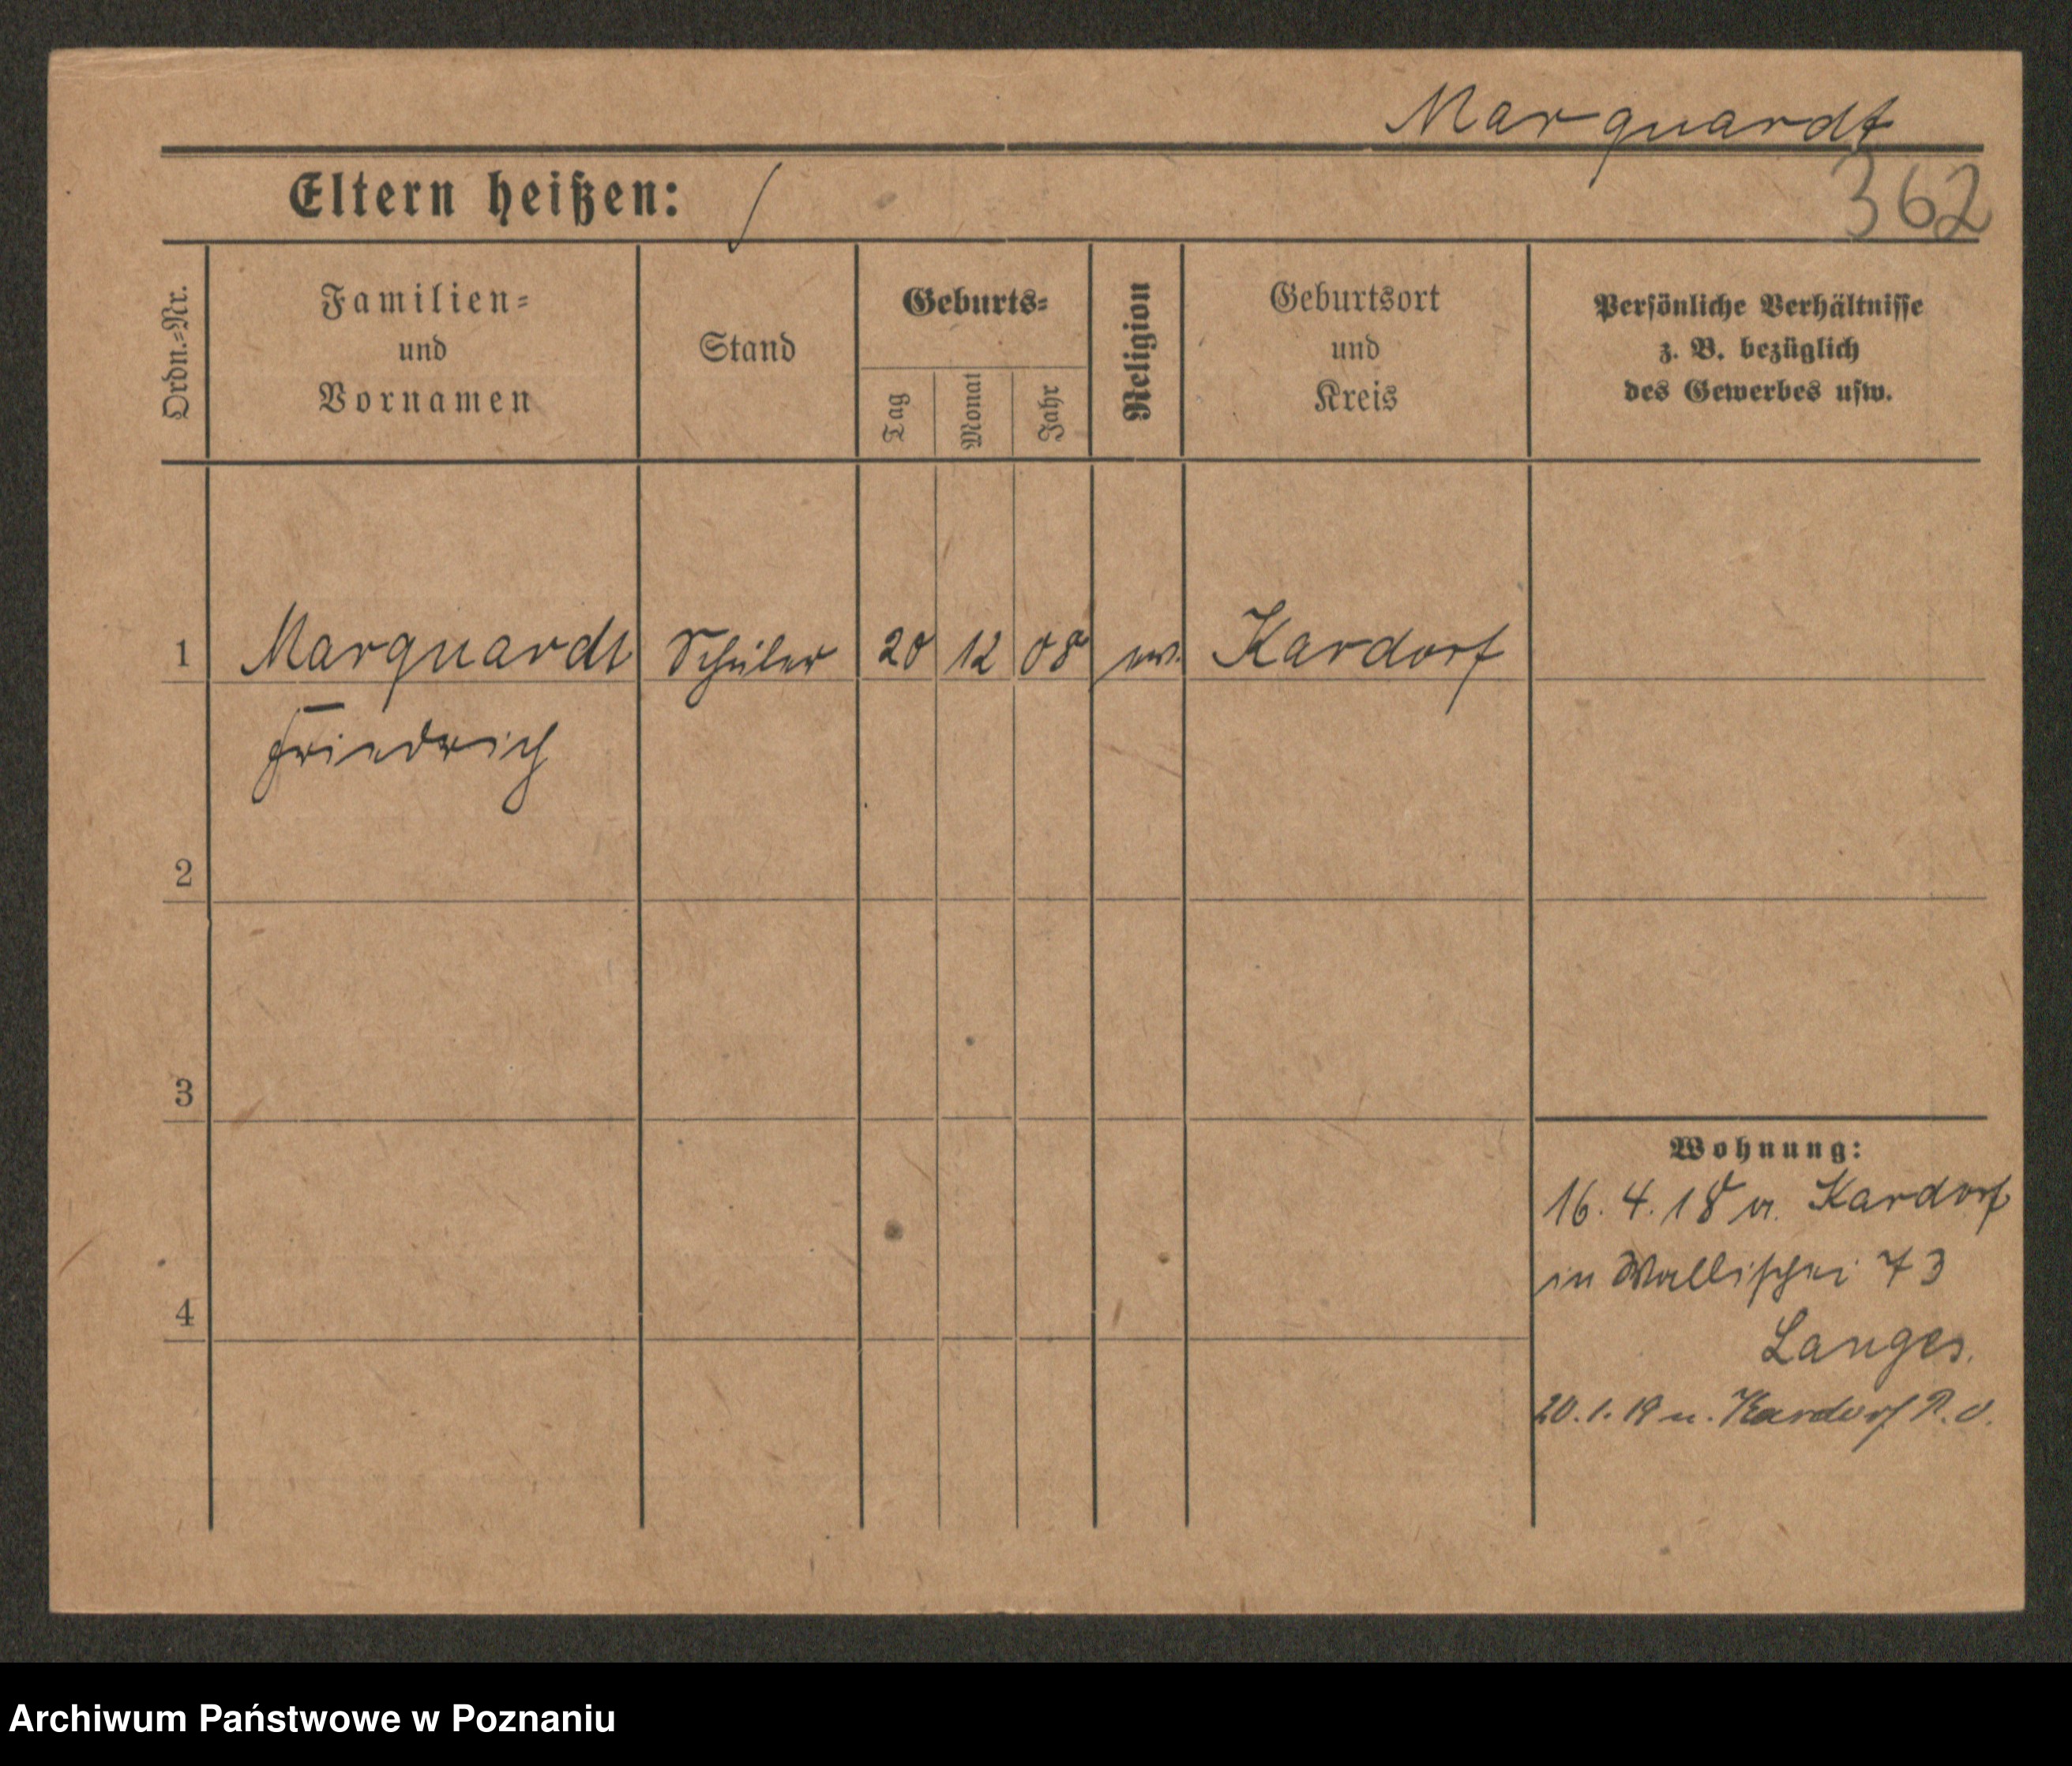 Marquardt
Eltern heißen: /
362
Ordn.-Nr.
Familien-
und
Vornamen
Stand
Geburts-
Tag
Monat
Jahr
Religion
Geburtsort
und
Kreis
Persönliche Verhältnisse
z. B. bezüglich
des Gewerbes usw.
1 Marquardt Schüler 20 12 08 ev. Kardorf
Friedrich
2
3
4
Wohnung:
16. 4. 18 v. Kardorf
in Wallischei 73
Langes.
20. 1. 19 n. Kardorf P. O.
Archiwum Państwowe w Poznaniu